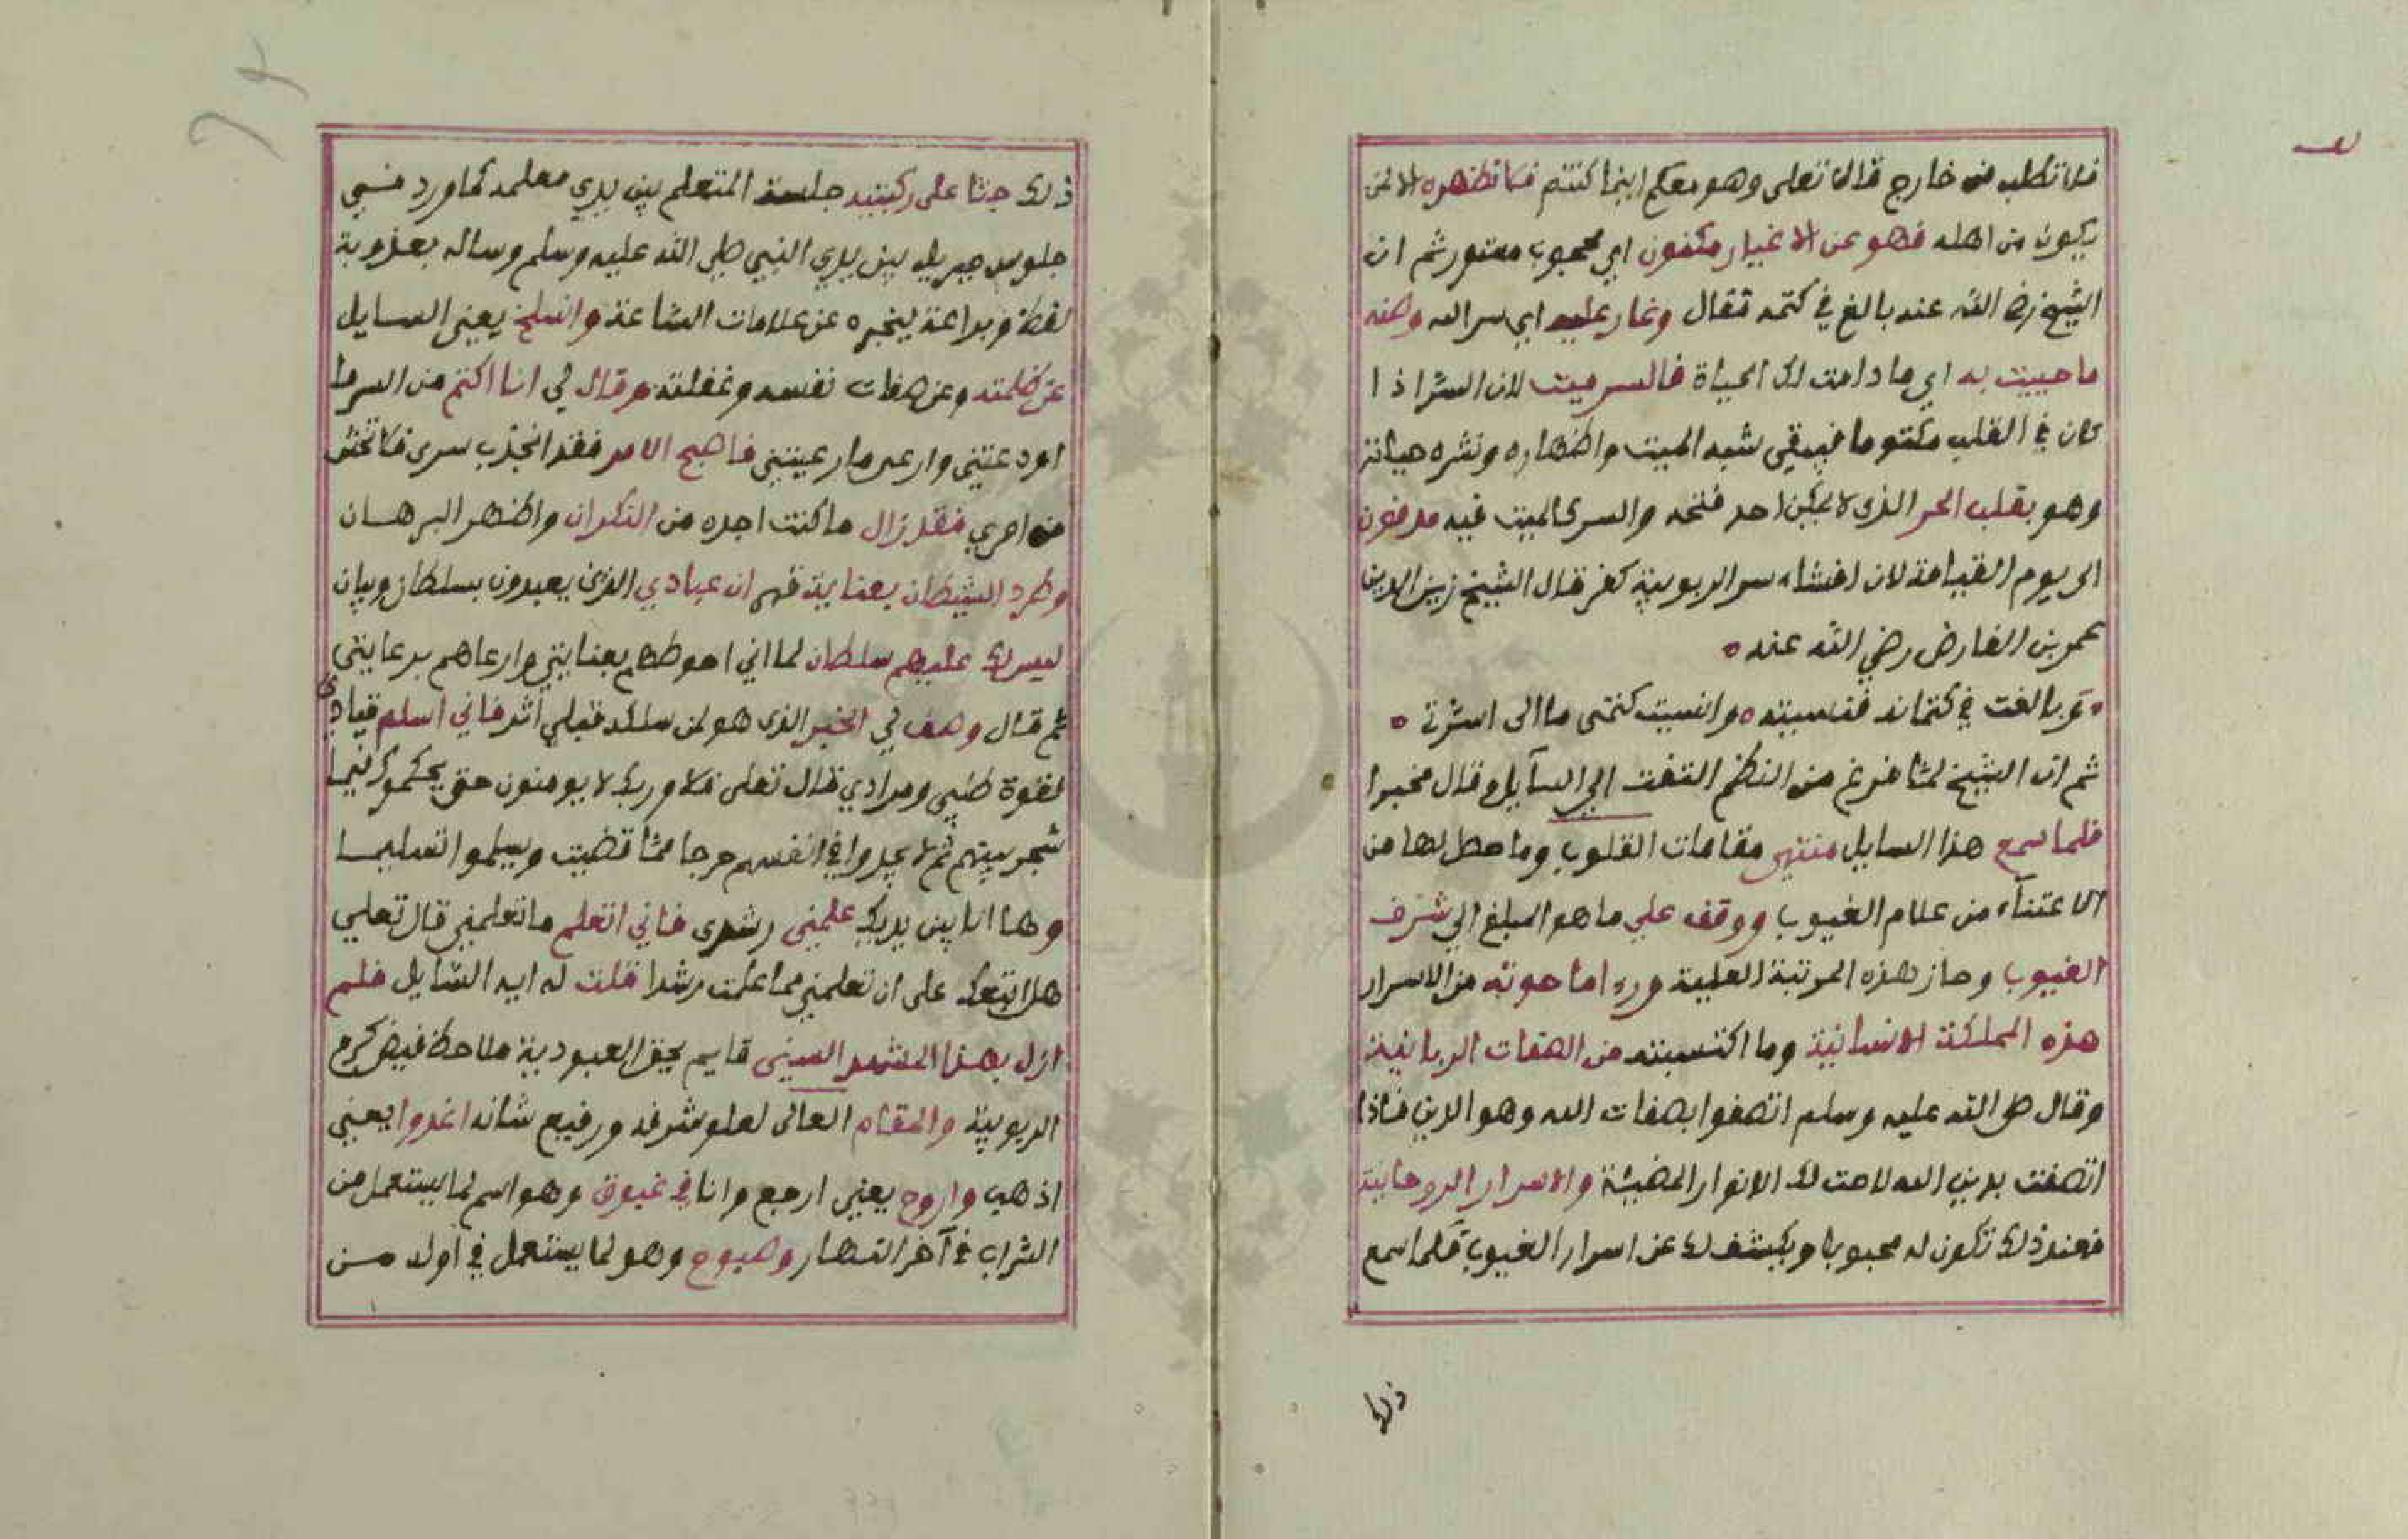 فلا تطلب من خارج قال تعلى وهو معكم اينما كنتم فما تظهره الا لمن
يكون من اهله فهو عن الاغيار مكنون اي محجوب مستور ثم ان
الشيخ رضي الله عنه بالغ في كتمه فقال وغار عليه اي سر الله وصنه
ما حييت به اي ما دامت لك الحياة فالسر ميت لان السر اذا
كان في القلب مكتوما فيبقى شبه الميت واظهاره ونشره حياته
وهو بقلب الحر الذى لا يمكن احد فتحه والسر كالميت فيه مدفون
الى يوم القيامة لان افشاء سر الربوبية كفر قال الشيخ زين الدين
عمر بن الفارض رضي الله عنه
وبالغت في كتمانه فنسيته وانسيت كتمى ما الى اسرت
ثم ان الشيخ لما فرغ من النظم التفت الى السايل وقال مخبرا
فلما سمع هذا السايل منتهى مقامات القلوب وما حصل لها من
الاعتناء من علام الغيوب ووقف على ما هو المبلغ الي شرف
الغيوب وحاز هذه المرتبة العلية وراء ما حوته من الاسرار
هذه المملكة الانسانية وما اكتسبته من الصفات الربانية
وقال صلى الله عليه وسلم اتصفوا بصفات الله وهو الدين فاذا
اتصفت بدين الله لاحت لك الانوار المضيئة والاسرار الروحانية
فعند ذلك تكون له محبوبا ويكشف لك عن اسرار الغيوب فلما سمع
ذلك
ذلك جثا على ركبتيه جلسة المتعلم بين يدي معلمه كما ورد في
جلوس جبريل بين يدي النبي صلى الله عليه وسلم وساله بعذوبة
لفظ وبراعة ليخبره عن علامات الساعة وانسلخ يعني السايل
عن ظلمته وعن صفات نفسه وغفلته وقال لي انا اكتم من السر ما
اودعتني وارعى ما رعيتني فاصبح الامر فقد انجذب سرى فكا تخش
من امري فقد زال ما كنت اجده من النكران واظهر البرهان
وطرد الشيطان بعناية فهم ان عبادي الذين يعبدون بسلطان وبيان
ليس لك عليهم سلطان لما اني احوطهم بعنايتي وارعاهم برعايتي
ثم قال وصف لي الخبر الذى هو لمن سلك قبلي اثر فاني اسلم قيادى
لقوة طلبي ومرادي قال تعلى فلا وربك لا يومنون حتى يحكموك فيما
شجر بينهم ثم لا يجدوا في انفسهم حرجا مما قضيت ويسلموا تسليما
وها انا بين يديك علمني رشدى فاني اتعلم ما تعلمني قال تعلي
هل اتبعك على ان تعلمني مما علمت رشدا قلت له ايه السايل فلم
ازل بهذا المشهد السني قايم بحق العبودية ملاحظ فيض كرم
الربوبية والمقام العالى لعلو شرفه ورفيع شانه اغدوا يعني
اذهب واروح يعني ارجع وانا في غبوق وهو اسم لما يستعمل من
الشراب في آخر النهار وصبوح وهو لما يستعمل في اوله من